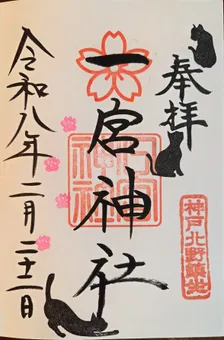 奉拝
一宮神社
令和八年二月二十二日
神戸北野鎮座